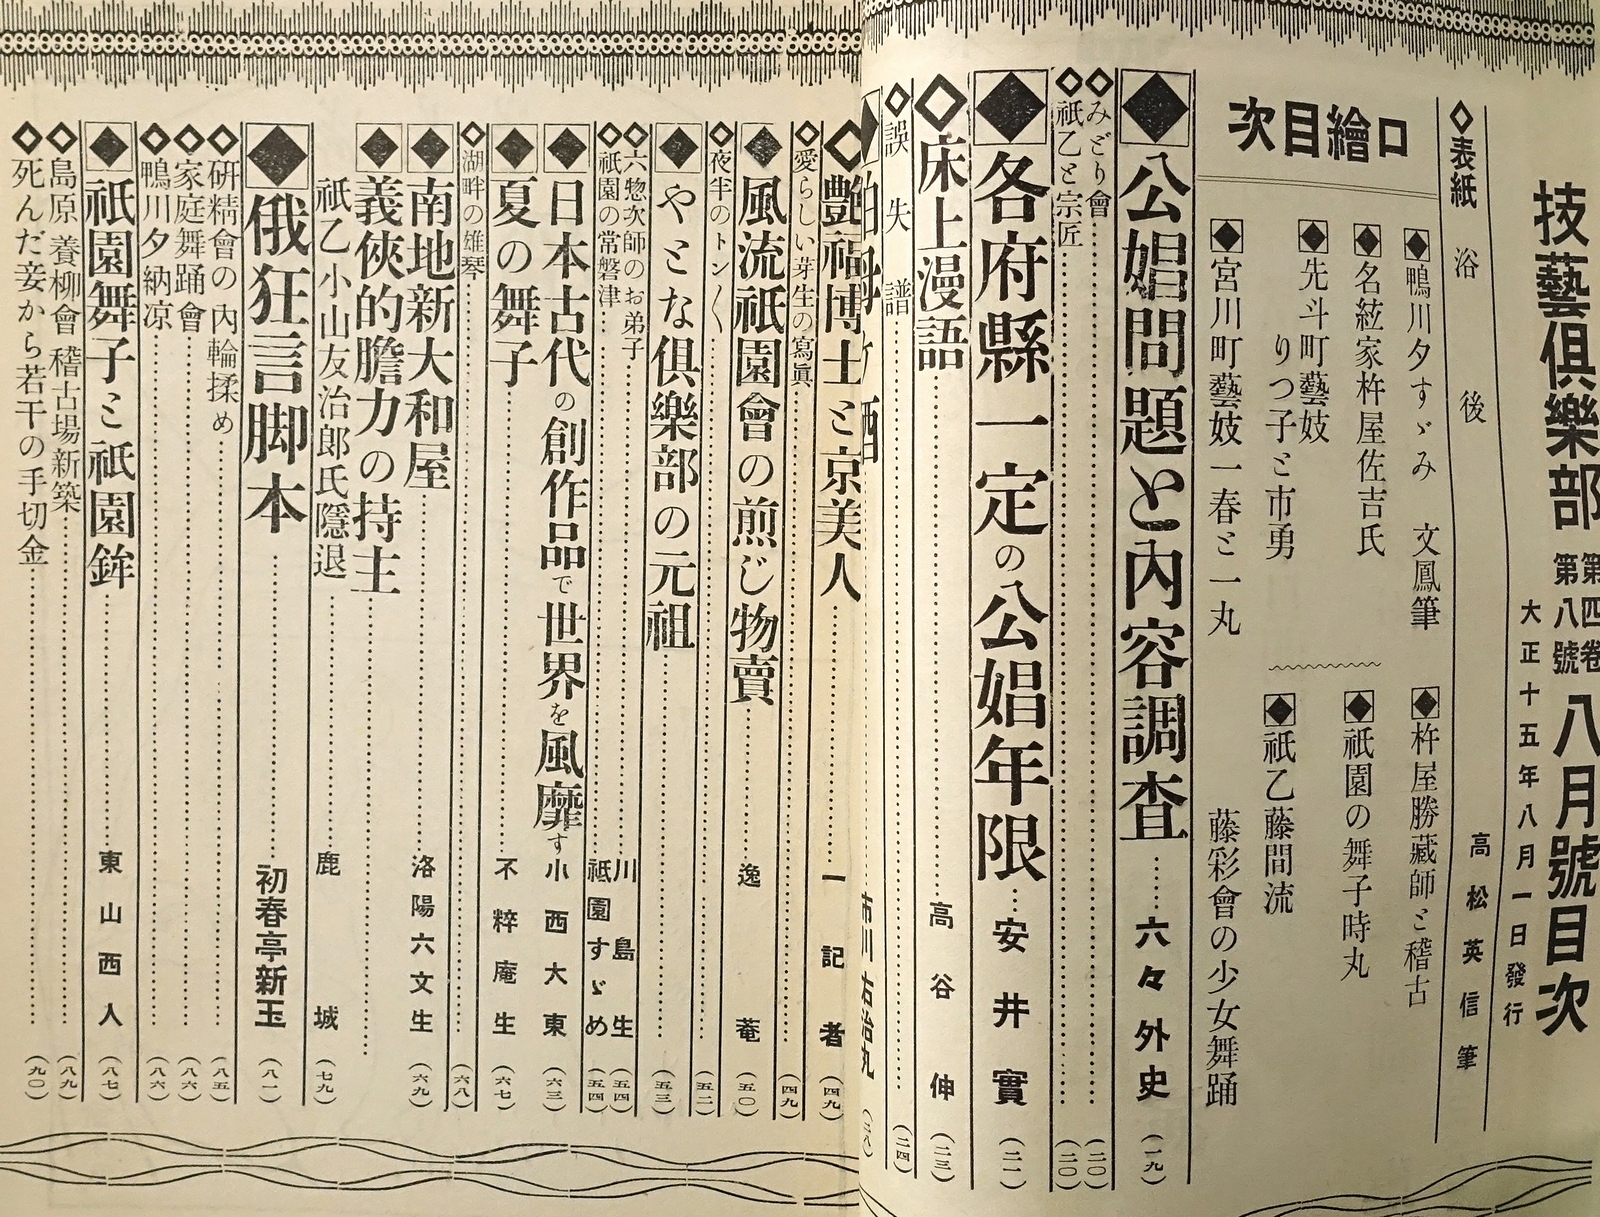 技藝俱樂部 第四卷 第八號 八月號目次
大正十五年八月一日發行
◇表紙 浴後 高松英信筆
口繪目次
◆鴨川夕すゞみ 文鳳筆
◆名絃家杵屋佐吉氏
◆先斗町藝妓
りつ子と市勇
◆宮川町藝妓一春と一丸
◆杵屋勝藏師と稽古
◆祇園の舞子時丸
◆祇乙藤間流
藤彩會の少女舞踊
◆公娼問題と內容調査……六々外史(一九)
◇みどり會……(二〇)
◇祇乙と宗匠……(二〇)
◆各府縣一定の公娼年限……安井實(二一)
◇床上漫語……高谷伸(二三)
◇誤失譜……(二四)
市川右治丸
◇艶福博士と京美人……一記者(四九)
◇愛らしい芽生の寫眞……(四九)
◆風流祇園會の煎じ物賣……逸菴(五〇)
◇夜半のトン〱……(五二)
◆やとな俱樂部の元祖……(五三)
◇六惣次師のお弟子……川島生(五四)
◇祇園の常磐津……祗園すゞめ(五四)
◆日本古代の創作品で世界を風靡す 小西大東(六三)
◆夏の舞子……不粹庵生(六七)
◇湖畔の雄琴……(六八)
◆南地新大和屋……洛陽六文生(六九)
◆義俠的膽力の持主……
祇乙小山友治郎氏隱退……鹿城(七九)
◆俄狂言脚本……初春亭新玉(八一)
◇硏精會の內輪揉め……(八五)
◇家庭舞踊會……(八六)
◇鴨川夕納凉……(八六)
◆祇園舞子と祇園鉾……東山西人(八七)
◇島原養柳會稽古場新築……(八九)
◇死んだ妾から若干の手切金……(九〇)